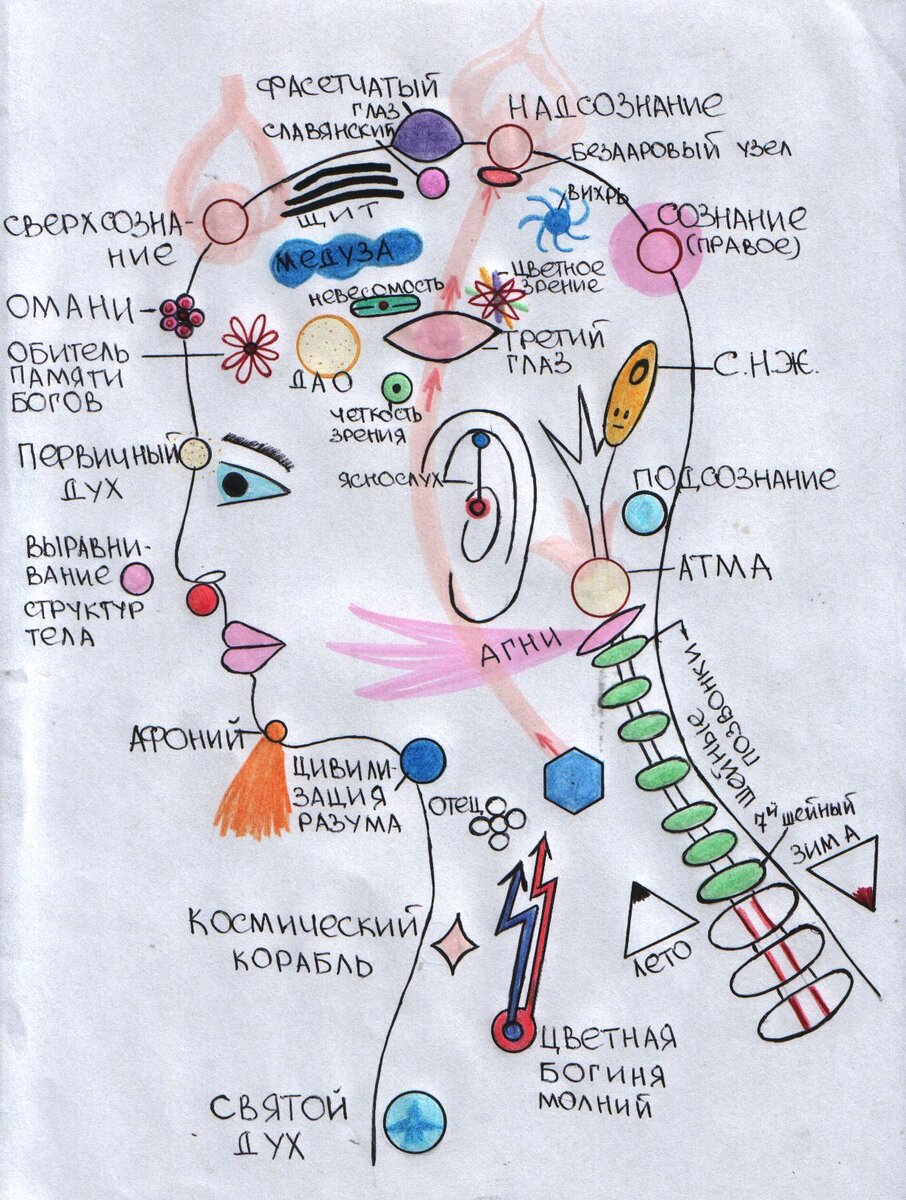 ФАСЕТЧАТЫЙ
ГЛАЗ
СЛАВЯНСКИЙ
НАДСОЗНАНИЕ
БЕЗДАРОВЫЙ УЗЕЛ
ВИХРЬ
СОЗНАНИЕ
(ПРАВОЕ)
СВЕРХСОЗНА-
НИЕ
ЩИТ
МЕДУЗА
НЕВЕСОМОСТЬ
ЦВЕТНОЕ
ЗРЕНИЕ
ОМАНИ
ОБИТЕЛЬ
ПАМЯТИ
БОГОВ
ДАО
ТРЕТИЙ
ГЛАЗ
С.Н.Ж.
ЧЕТКОСТЬ
ЗРЕНИЯ
ПЕРВИЧНЫЙ
ДУХ
ЯСНОСЛУХ
ПОДСОЗНАНИЕ
ВЫРАВНИ-
ВАНИЕ
СТРУКТУР
ТЕЛА
АТМА
АГНИ
ШЕЙНЫЕ
ПОЗВОНКИ
АФОНИЙ
ЦИВИЛИ-
ЗАЦИЯ
РАЗУМА
ОТЕЦ
7й ШЕЙНЫЙ
ЗИМА
КОСМИЧЕСКИЙ
КОРАБЛЬ
ЛЕТО
ЦВЕТНАЯ
БОГИНЯ
МОЛНИЙ
СВЯТОЙ
ДУХ